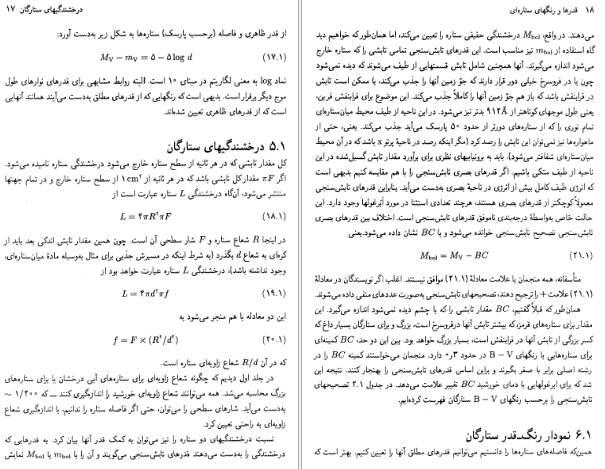 درخشندگیهای ستارگان ۱۷
از قدر ظاهری و فاصله (برحسب پارسک) ستاره‌ها به شکل زیر به‌دست آورد:
(۱۷.۱) M_V − m_V = ۵ − ۵ log d
نماد log به معنی لگاریتم در مبنای ۱۰ است. البته روابط مشابهی برای قدرهای نوارهای طول
موج دیگر برقرار است. بدیهی است که رنگهایی که از قدرهای مطلق به‌دست می‌آیند همانند آنهایی
است که از قدرهای ظاهری تعیین شده‌اند.
۵.۱ درخشندگیهای ستارگان
کل مقدار تابشی که در هر ثانیه از سطح ستاره خارج می‌شود درخشندگی ستاره نامیده می‌شود.
اگر πF مقدار کل تابشی باشد که در هر ثانیه از ۱ cm² از سطح ستاره خارج و در تمام جهتها
منتشر می‌شود، آن‌گاه درخشندگی L ستاره عبارت است از
(۱۸.۱) L = ۴πR²πF
در اینجا R شعاع ستاره و F شار سطحی آن است. چون همین مقدار تابش اندکی بعد باید از
کره‌ای به شعاع d بگذرد (به شرط اینکه در مسیرش جذبی برای مثال به‌وسیله مادهٔ میان‌ستاره‌ای،
وجود نداشته باشد)، درخشندگی L ستاره عبارت خواهد بود از
(۱۹.۱) L = ۴πd²πf
این دو معادله با هم منجر می‌شود به
(۲۰.۱) f = F × (R²/d²)
که در آن R/d شعاع زاویه‌ای ستاره است.
در جلد اول دیدیم که چگونه شعاع زاویه‌ای برای ستاره‌های آبی درخشان یا برای ستاره‌های
بزرگ محاسبه می‌شد. همه می‌توانند شعاع زاویه‌ای خورشید را اندازه‌گیری کنند — که ۱/۲۰۰ ~
به‌دست می‌آید. شارهای سطحی را می‌توان، حتی اگر فاصله ستاره را ندانیم، با اندازه‌گیری شعاع
زاویه‌ای به راحتی تعیین کرد.
نسبت درخشندگیهای دو ستاره را نیز می‌توان به کمک قدر آنها بیان کرد. به قدرهایی که
درخشندگی را به‌دست می‌دهند قدرهای تابش‌سنجی می‌گویند و آن را با m_bol یا M_bol نمایش
۱۸ قدرها و رنگهای ستاره‌ای
می‌دهند. در واقع، M_bol درخشندگی حقیقی ستاره را تعیین می‌کند، اما همان‌طور که خواهیم دید
گاه استفاده از m_bol نیز مناسب است. این قدرهای تابش‌سنجی تمامی تابشی را که ستاره خارج
می‌شود اندازه می‌گیرند. آنها همچنین شامل تابش قسمتهایی از طیف می‌شوند که دیده نمی‌شود
چون یا در فروسرخ خیلی دور قرار دارند که جوّ زمین آنها را جذب می‌کند، یا ممکن است تابش
در فرابنفش باشد که باز هم جوّ زمین آنها را کاملاً جذب می‌کند. این موضوع برای فرابنفش فرین،
یعنی طول موجهای کوتاهتر از ۹۱۲Å بدتر نیز می‌شود. در این ناحیه از طیف محیط میان‌ستاره‌ای
تمام نوری را که از ستاره‌های دورتر از حدود ۵۰ پارسک می‌آید جذب می‌کند. یعنی، حتی از
ماهواره‌ها نیز نمی‌توان این تابش را رصد کرد (مگر اینکه رصد در ناحیهٔ پرتو x باشد که در آن محیط
میان‌ستاره‌ای شفافتر می‌شود). باید به برونیابیهای نظری برای برآورد مقدار تابش گسیل‌شده در این
ناحیه از طیف متکی باشیم. اگر قدرهای بصری تابش‌سنجی را با هم مقایسه کنیم بدیهی است
که انرژی طیف کامل بیش از انرژی در ناحیهٔ بصری به‌دست می‌آید. بنابراین قدرهای تابش‌سنجی
معمولاً کوچکتر از قدرهای بصری هستند، هرچند تعدادی استثنا در مورد اَبَرغولها وجود دارد. این
حالت خاص به‌واسطهٔ درجه‌بندی ناموفق قدرهای تابش‌سنجی است. اختلاف بین قدرهای بصری
تابش‌سنجی تصحیح تابش‌سنجی خوانده می‌شود و با BC نشان داده می‌شود. یعنی
(۲۱.۱) M_bol = M_V − BC
متأسفانه، همه منجمان با علامت معادلهٔ (۲۱.۱) موافق نیستند. اغلب اگر نویسندگان در معادلهٔ
(۲۱.۱) علامت + را ترجیح دهند، تصحیحهای تابش‌سنجی به‌صورت عددهای منفی داده می‌شوند.
همان‌طور که قبلاً گفتیم، BC مقدار تابشی را که با چشم دیده نمی‌شود اندازه می‌گیرد. این
مقدار برای ستاره‌های قرمز، که بیشتر تابش آنها در فروسرخ است، بزرگ و برای ستارگان بسیار داغ که
کسر بزرگی از تابش آنها در فرابنفش است، بسیار بزرگ خواهد بود. بین این دو حد، BC کمینه‌ای
برای ستاره‌هایی با رنگهای B − V در حدود ۰٫۳ دارد. منجمان می‌خواستند کمینه BC را در
رشته اصلی برابر با صفر بگیرند و براین اساس قدرهای تابش‌سنجی را بهنجار کنند. نتیجه این
شد که برای ابرغولهایی با دمای خورشید BC تغییر علامت می‌دهد. در جدول ۲.۱ تصحیحهای
تابش‌سنجی را برحسب رنگهای B − V ستارگان فهرست کرده‌ایم.
۶.۱ نمودار رنگ‌ـ‌قدر ستارگان
همین‌که فاصله‌های ستاره‌ها را دانستیم می‌توانیم قدرهای مطلق آنها را تعیین کنیم. بهتر است که